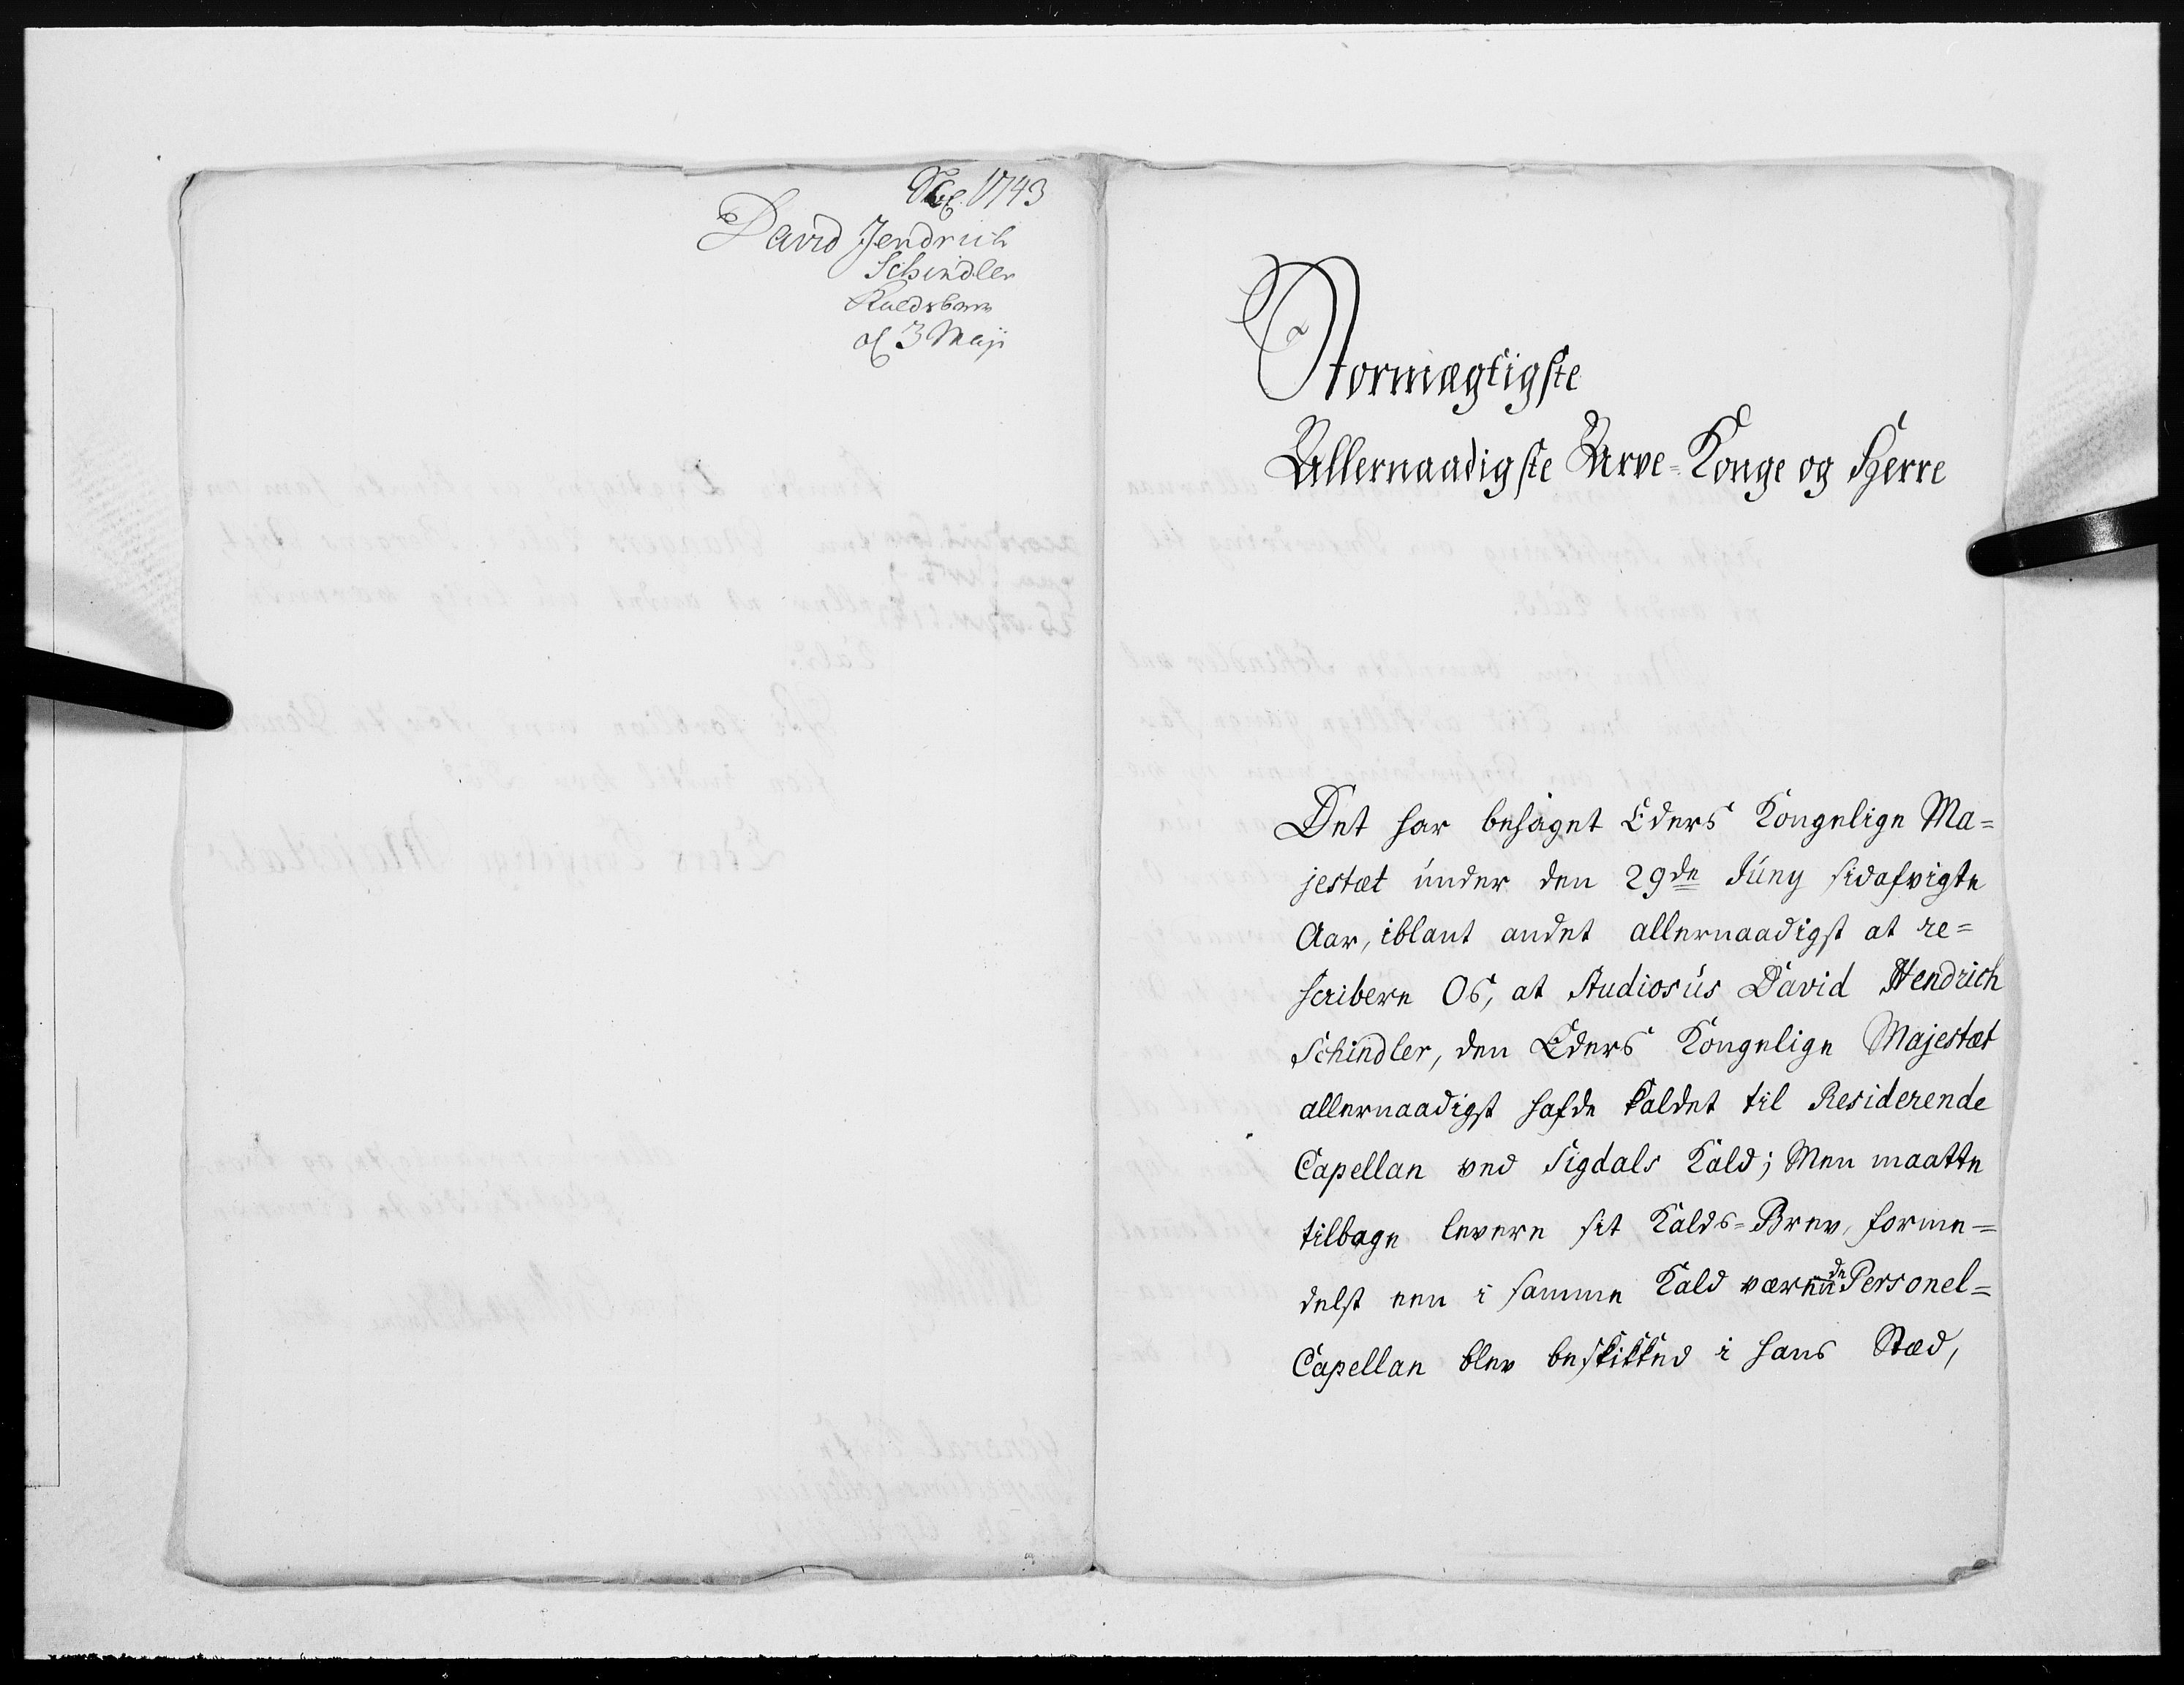 1743
David Hendrich
Schindler
Kaldsbrev
af 3 Maji
Stormægtigste
Allernaadigste Arve-Konge og Herre
Det har behaget Eders Kongelige Ma=
jestæt under den 29de Juny sidafvigte
Aar, iblant andet allernaadigst at re=
scribere Os, at Studiosus David Hendrich
Schindler, den Eders Kongelige Majestæt
allernaadigst hafde kaldet til Residerende
Capellan ved Sigdals Kald; Men maatte
tilbage levere sit Kalds=Brev, forme=
delst een i samme Kald værende Personel=
Capellan blev beskikked i hans Stæd,